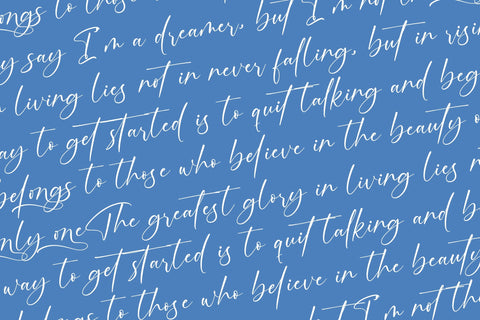 ongs to those
y say I'm a dreamer, but I'm not
living lies not in never falling, but in risin
ay to get started is to quit talking and beg
belongs to those who believe in the beauty o
nly one The greatest glory in living lies n
way to get started is to quit talking and b
ongs to those who believe in the beauty
but I'm not th